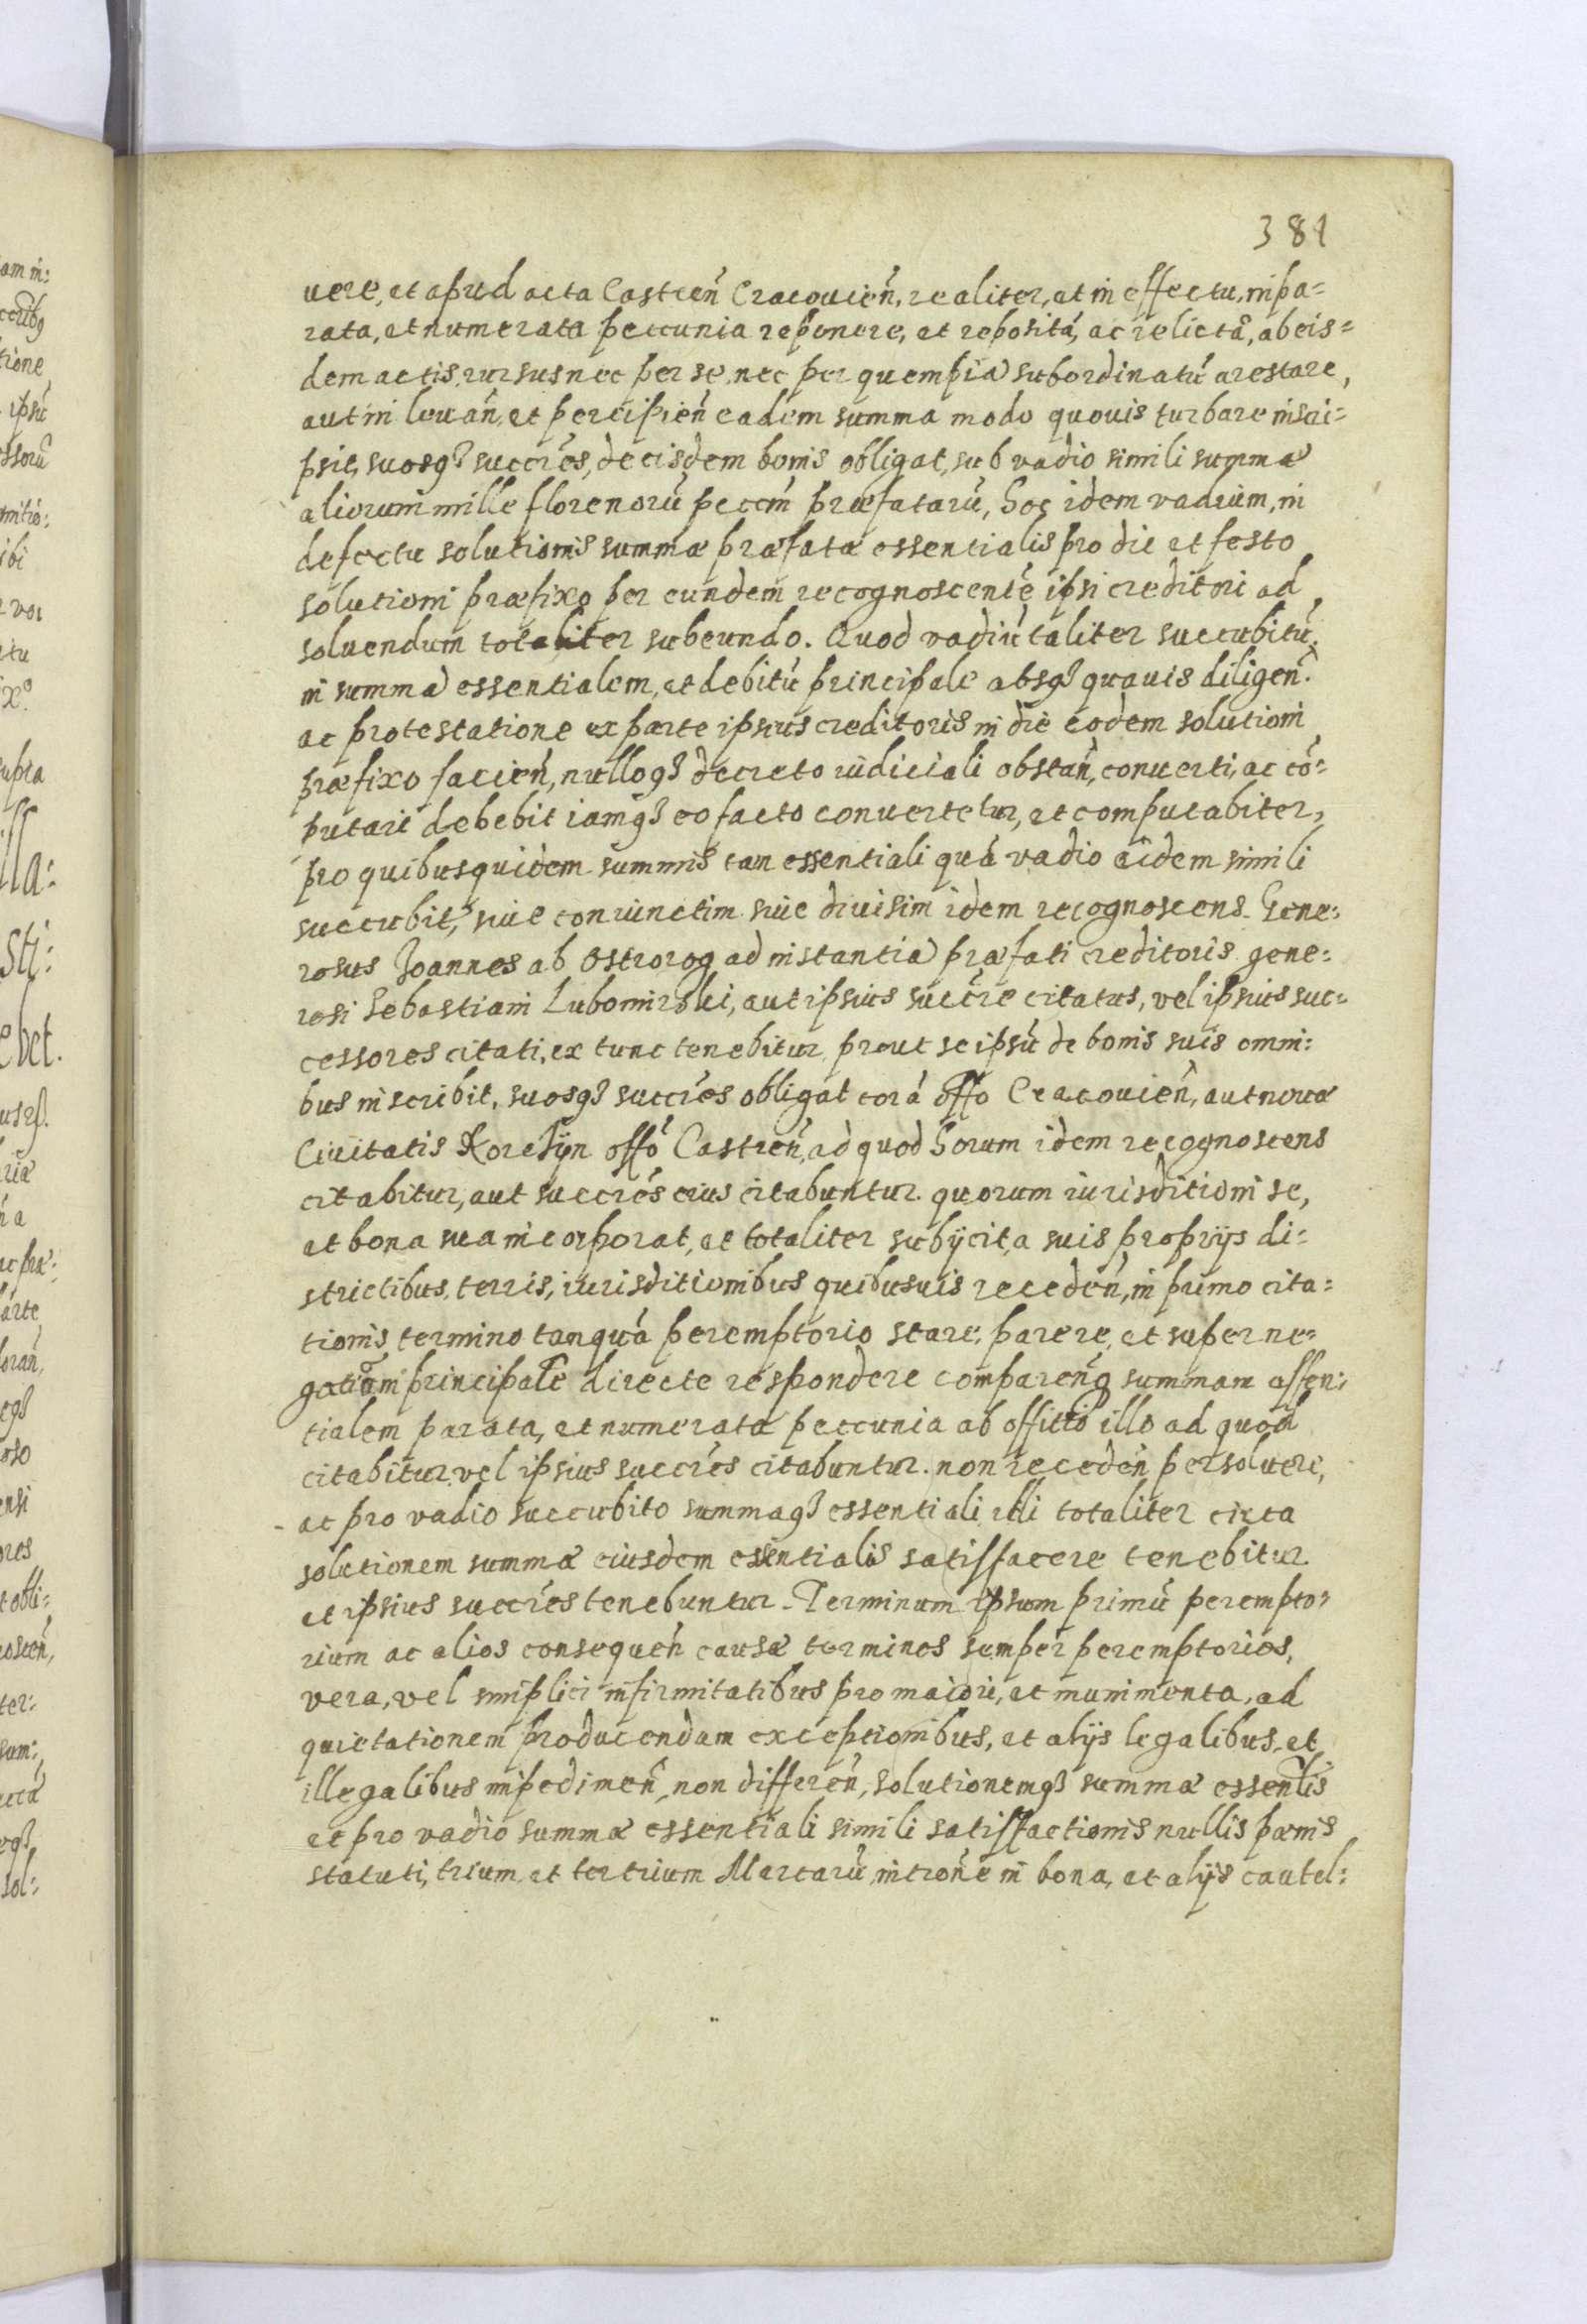 381
uere, et apud acta Castreñ Cracouieñ, realiter, et in effectu, in pa=
rata, et numerata peccunia reponere, et reposità, ac relictã, ab eis=
dem actis, rursus nec per se, nec per quempiã subordinatũ arestare,
aut in leuañ, et percipieñ eadem summa modo quouis turbare inscri=
psit, suosq3 succr̃es, de eisdem bonis obligat, sub vadio simili summæ
aliorum mille florenorũ pecc̃m præfatarũ, hoc idem vadium, in
defectu solutionis summæ præfatæ essentialis pro die et festo
solutioni præfixo per eundem recognoscentẽ ipsi creditori ad
soluendum totaliter subeundo. Quod vadiũ taliter succubitũ,
in summã essentialem, et debitũ principale absq3 quauis diligeñ.
ac protestatione ex parte ipsius creditoris in die eodem solutioni
præfixo facieñ, nulloq3 decreto iudiciali obstañ, conuerti, ac cõ=
putari debebit iamq3 eo facto conuertetur, et computabiter,
pro quibusquidem summis tam essentiali quã vadio eidem simili
succubit, siue coniunctim siue diuisim idem recognoscens Gene=
rosus Joannes ab Ostrorog ad instantiã præfati creditoris gene=
rosi Sebastiani Lubomirski, aut ipsius succr̃e citatus, vel ipsius suc=
cessores citati, ex tunc tenebitur, prout seipsũ de bonis suis omni=
bus inscribit, suosq3 succr̃es obligat corã offo Cracouieñ, aut nouæ
Ciuitatis Korczyn offõ Castreñ, ad quod horum idem recognoscens
citabitur, aut succr̃es eius citabuntur. quorum iurisditioni se,
et bona sua incorporat, et totaliter subÿcit, a suis proprÿs di=
strictibus, terris, iurisditionibus quibusuis recedeñ, in primo cita=
tionis termino tanquã peremptorio stare, parere, et super ne=
gotium principale directe respondere compareñq summam essen=
tialem parata, et numerata peccunia ab offitio illo ad quod
citabitur vel ipsius succr̃es citabuntur. non recedeñ persoluere,
ac pro vadio succubito summaq3 essentiali illi totaliter circa
solutionem summæ eiusdem essentialis satisfacere tenebitur
et ipsius succr̃es tenebuntur. Terminum ipsum primũ perempto=
rium ac alios consequeñ causæ terminos semper peremptorios,
vera, vel simplici infirmitatibus pro maiori, et munimenta, ad
quietationem producendam exceptionibus, et alÿs legalibus, et
illegalibus impedimeñ, non differeñ, solutionemq3 summæ essen̄lis
et pro vadio summæ essentiali simili satisfactionis nullis pœnis
statuti, trium et tertium Marcarũ, intronẽ in bona, et alÿs cautel=